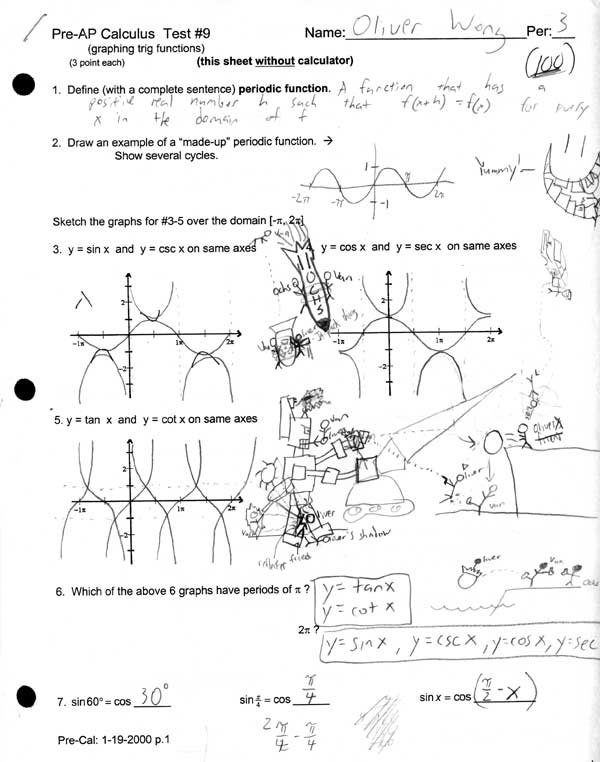 Pre-AP Calculus Test #9 Name: Oliver Wong Per: 3
(graphing trig functions)
(3 point each) (this sheet without calculator)
(100)
1. Define (with a complete sentence) periodic function. A function that has a
positive real number h such that f(x+h) = f(x) for every
x in the domain of f
2. Draw an example of a "made-up" periodic function. →
Show several cycles.
Yummy!
1
-2π -π π 2π
-1
Sketch the graphs for #3-5 over the domain [-π, 2π]
3. y = sin x and y = csc x on same axes 4. y = cos x and y = sec x on same axes
Ochs Van
OCHS
2 2
-1π 1π 2π -1π 1π 2π
-2 -2
5. y = tan x and y = cot x on same axes
Van
Oliver
2
Oliver
Van
-1π 1π 2π
-2
Oliver
Oliver's shadow
Oliver Van
6. Which of the above 6 graphs have periods of π ? y = tan x
y = cot x
2π ?
y = sin x , y = csc x , y = cos x , y = sec
7. sin 60° = cos 30° sin π/4 = cos π/4 sin x = cos (π/2 - x)
2π/4 - π/4
Pre-Cal: 1-19-2000 p.1